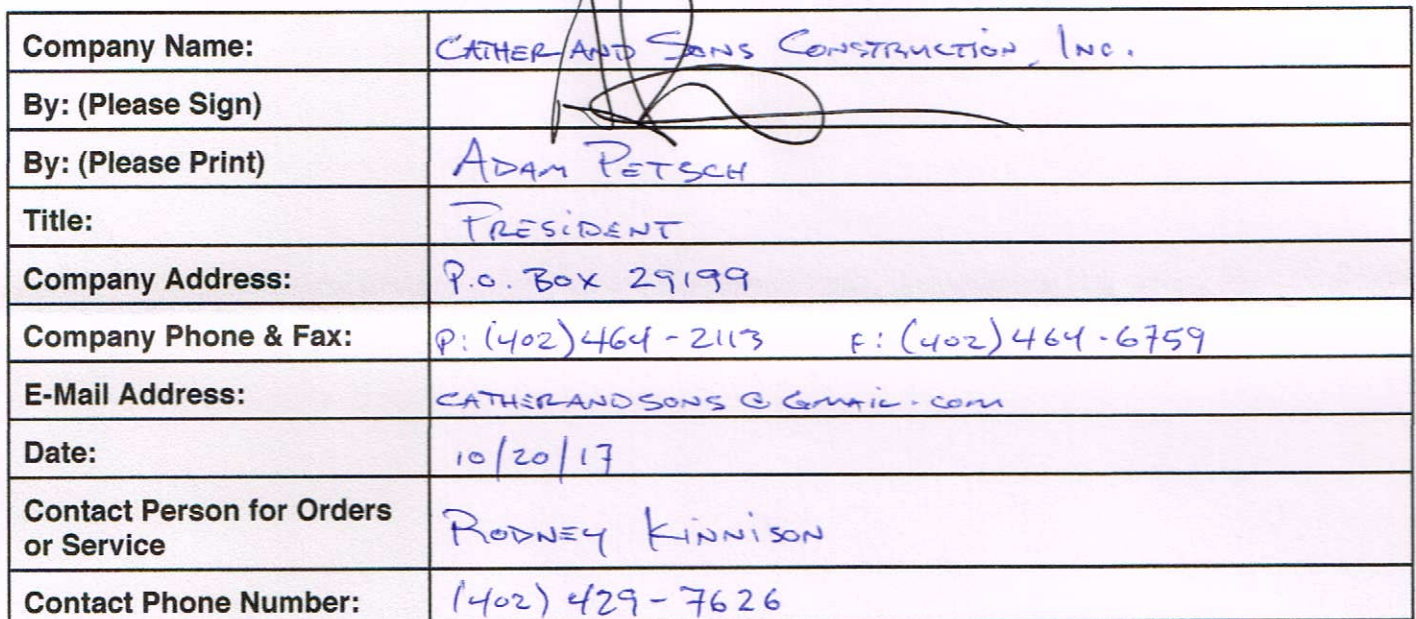 Company Name: CATHER AND SONS CONSTRUCTION, INC.
By: (Please Sign)
By: (Please Print) ADAM PETSCH
Title: PRESIDENT
Company Address: P.O. BOX 29199
Company Phone & Fax: P: (402) 464-2113 F: (402) 464-6759
E-Mail Address: CATHERANDSONS@GMAIL.COM
Date: 10/20/17
Contact Person for Orders
or Service RODNEY KINNISON
Contact Phone Number: (402) 429-7626